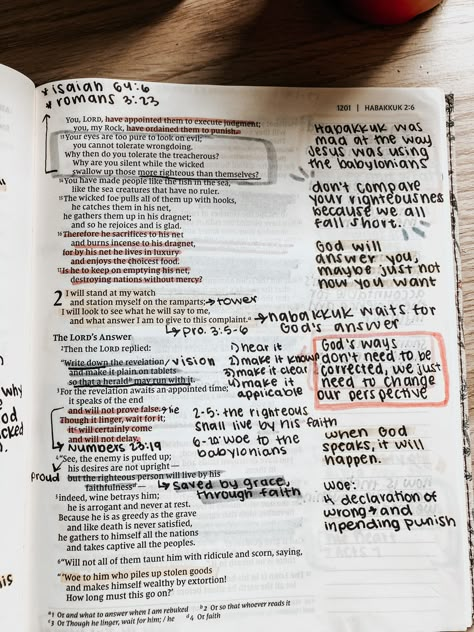 * isaiah 64:6
* romans 3:23
1201 | HABAKKUK 2:6
You, LORD, have appointed them to execute judgment;
you, my Rock, have ordained them to punish.
13 Your eyes are too pure to look on evil;
you cannot tolerate wrongdoing.
Why then do you tolerate the treacherous?
Why are you silent while the wicked
swallow up those more righteous than themselves?
14 You have made people like the fish in the sea,
like the sea creatures that have no ruler.
15 The wicked foe pulls all of them up with hooks,
he catches them in his net,
he gathers them up in his dragnet;
and so he rejoices and is glad.
16 Therefore he sacrifices to his net
and burns incense to his dragnet,
for by his net he lives in luxury
and enjoys the choicest food.
17 Is he to keep on emptying his net,
destroying nations without mercy?
2 I will stand at my watch
and station myself on the ramparts; → tower
I will look to see what he will say to me,
and what answer I am to give to this complaint.a
→ habakkuk waits for
God's answer
→ Pro. 3:5-6
The LORD's Answer
2 Then the LORD replied:
"Write down the revelation / vision
and make it plain on tablets
so that a herald b may run with it.
1) hear it
2) make it known
3) make it clear
4) make it
applicable
3 For the revelation awaits an appointed time;
it speaks of the end
and will not prove false. → he
Though it linger, wait for it;
it c will certainly come
and will not delay.
→ Numbers 23:19
2-5: the righteous
shall live by his faith
6-20: woe to the
babylonians
4 "See, the enemy is puffed up;
his desires are not upright—
but the righteous person will live by his
faithfulness d —
proud
→ saved by grace,
through faith
5 indeed, wine betrays him;
he is arrogant and never at rest.
Because he is as greedy as the grave
and like death is never satisfied,
he gathers to himself all the nations
and takes captive all the peoples.
6 "Will not all of them taunt him with ridicule and scorn, saying,
" 'Woe to him who piles up stolen goods
and makes himself wealthy by extortion!
How long must this go on?'
a 1 Or and what to answer when I am rebuked b 2 Or so that whoever reads it
c 3 Or Though he linger, wait for him; / he d 4 Or faith
Habakkuk was
mad at the way
Jesus was using
the babylonians
don't compare
your righteousness
because we all
fall short.
God will
answer you,
maybe just not
how you want
God's ways
don't need to be
corrected, we just
need to change
our perspective
when God
speaks, it will
happen.
woe:
A declaration of
wrong and
inpending punish
why
od
cked
is